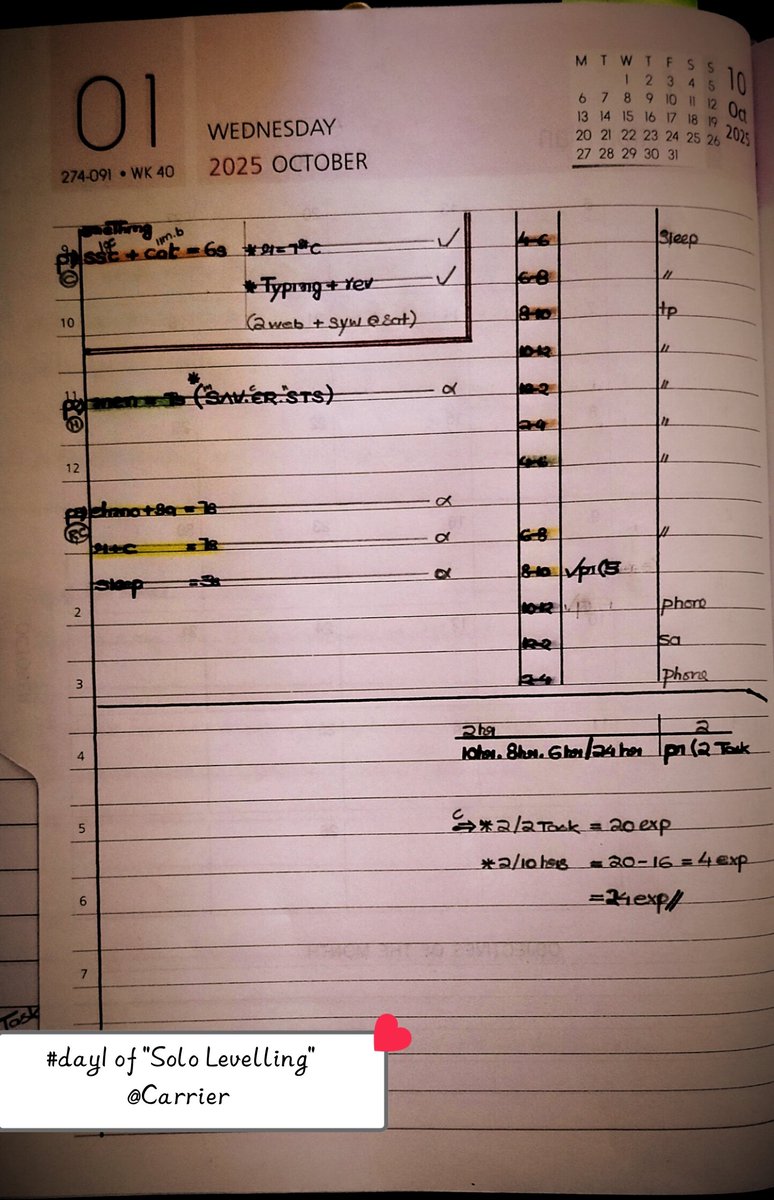 01
274-091 • WK 40
WEDNESDAY
2025 OCTOBER
M T W T F S S
1 2 3 4 5
6 7 8 9 10 11 12
13 14 15 16 17 18 19
20 21 22 23 24 25 26
27 28 29 30 31
10
Oct
2025
sst + cat = 6s
1m.b
*
✓
* Typing + rev ✓
(2 web + syw @ sat)
10
11
* (SAV.ER.STS) α
12
+8a = 7s α
+c = 7s α
sleep α
2
3
4-6 Sleep
6-8 "
8-10 tp
10-12 "
12-2 "
2-4 "
4-6 "
6-8 "
8-10
10-12 phone
12-2 sa
2-4 phone
4
2hr 2
10hr. 8hr. 6hr/24hr pr (2 Task
5
⇒ * 2/2 Task = 20 exp
* 2/10 hrs = 20-16 = 4 exp
6
= 24 exp//
7
Task
#day1 of "Solo Levelling"
@Carrier